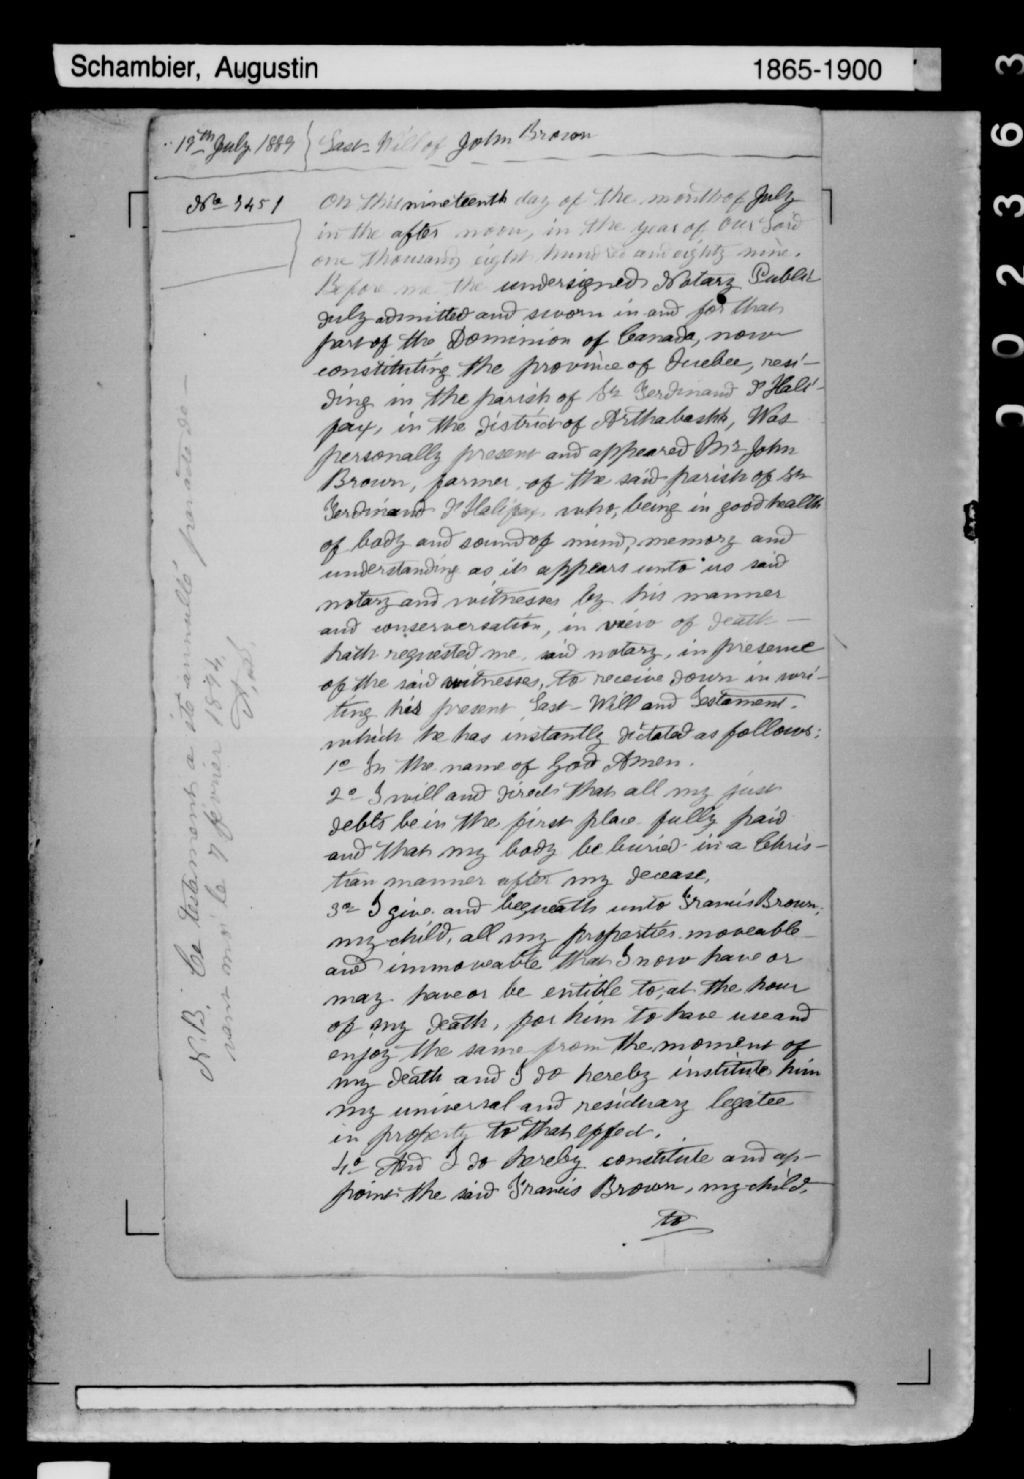 Schambier, Augustin 1865-1900
19th July 1889 Last Will of John Brown
No 3451
On this nineteenth day of the month of July
in the after noon, in the year of Our Lord
one thousand eight hundred and eighty nine.
Before me the undersigned Notary Public
duly admitted and sworn in and for that
part of the Dominion of Canada, now
constituting the province of Quebec, resi-
ding in the parish of St Ferdinand d'Hali-
fax, in the district of Arthabaska, Was
personally present and appeared Mr John
Brown, farmer, of the said parish of St
Ferdinand d'Halifax, who, being in good health
of body and sound of mind, memory and
understanding as it appears unto us said
notary and witnesses by his manner
and conserversation, in view of death —
hath requested me, said notary, in presence
of the said witnesses, to receive down in wri-
ting his present Last Will and Testament.
which he has instantly dictated as follows:
1o In the name of God Amen.
2o I will and direct that all my just
debts be in the first place fully paid
and that my body be buried in a Chris-
tian manner after my decease.
3o I give and bequeath unto Francis Brown,
my child, all my properties moveable
and immoveable that I now have or
may have or be entitle to, at the hour
of my death, for him to have use and
enjoy the same from the moment of
my death and I do hereby institute him
my universal and residuary legatee
in property to that effect.
4o And I do hereby constitute and ap-
point the said Francis Brown, my child,
to
N.B. Ce testament a été annullé par acte de-
vant moi le 7 février 1894.
002363